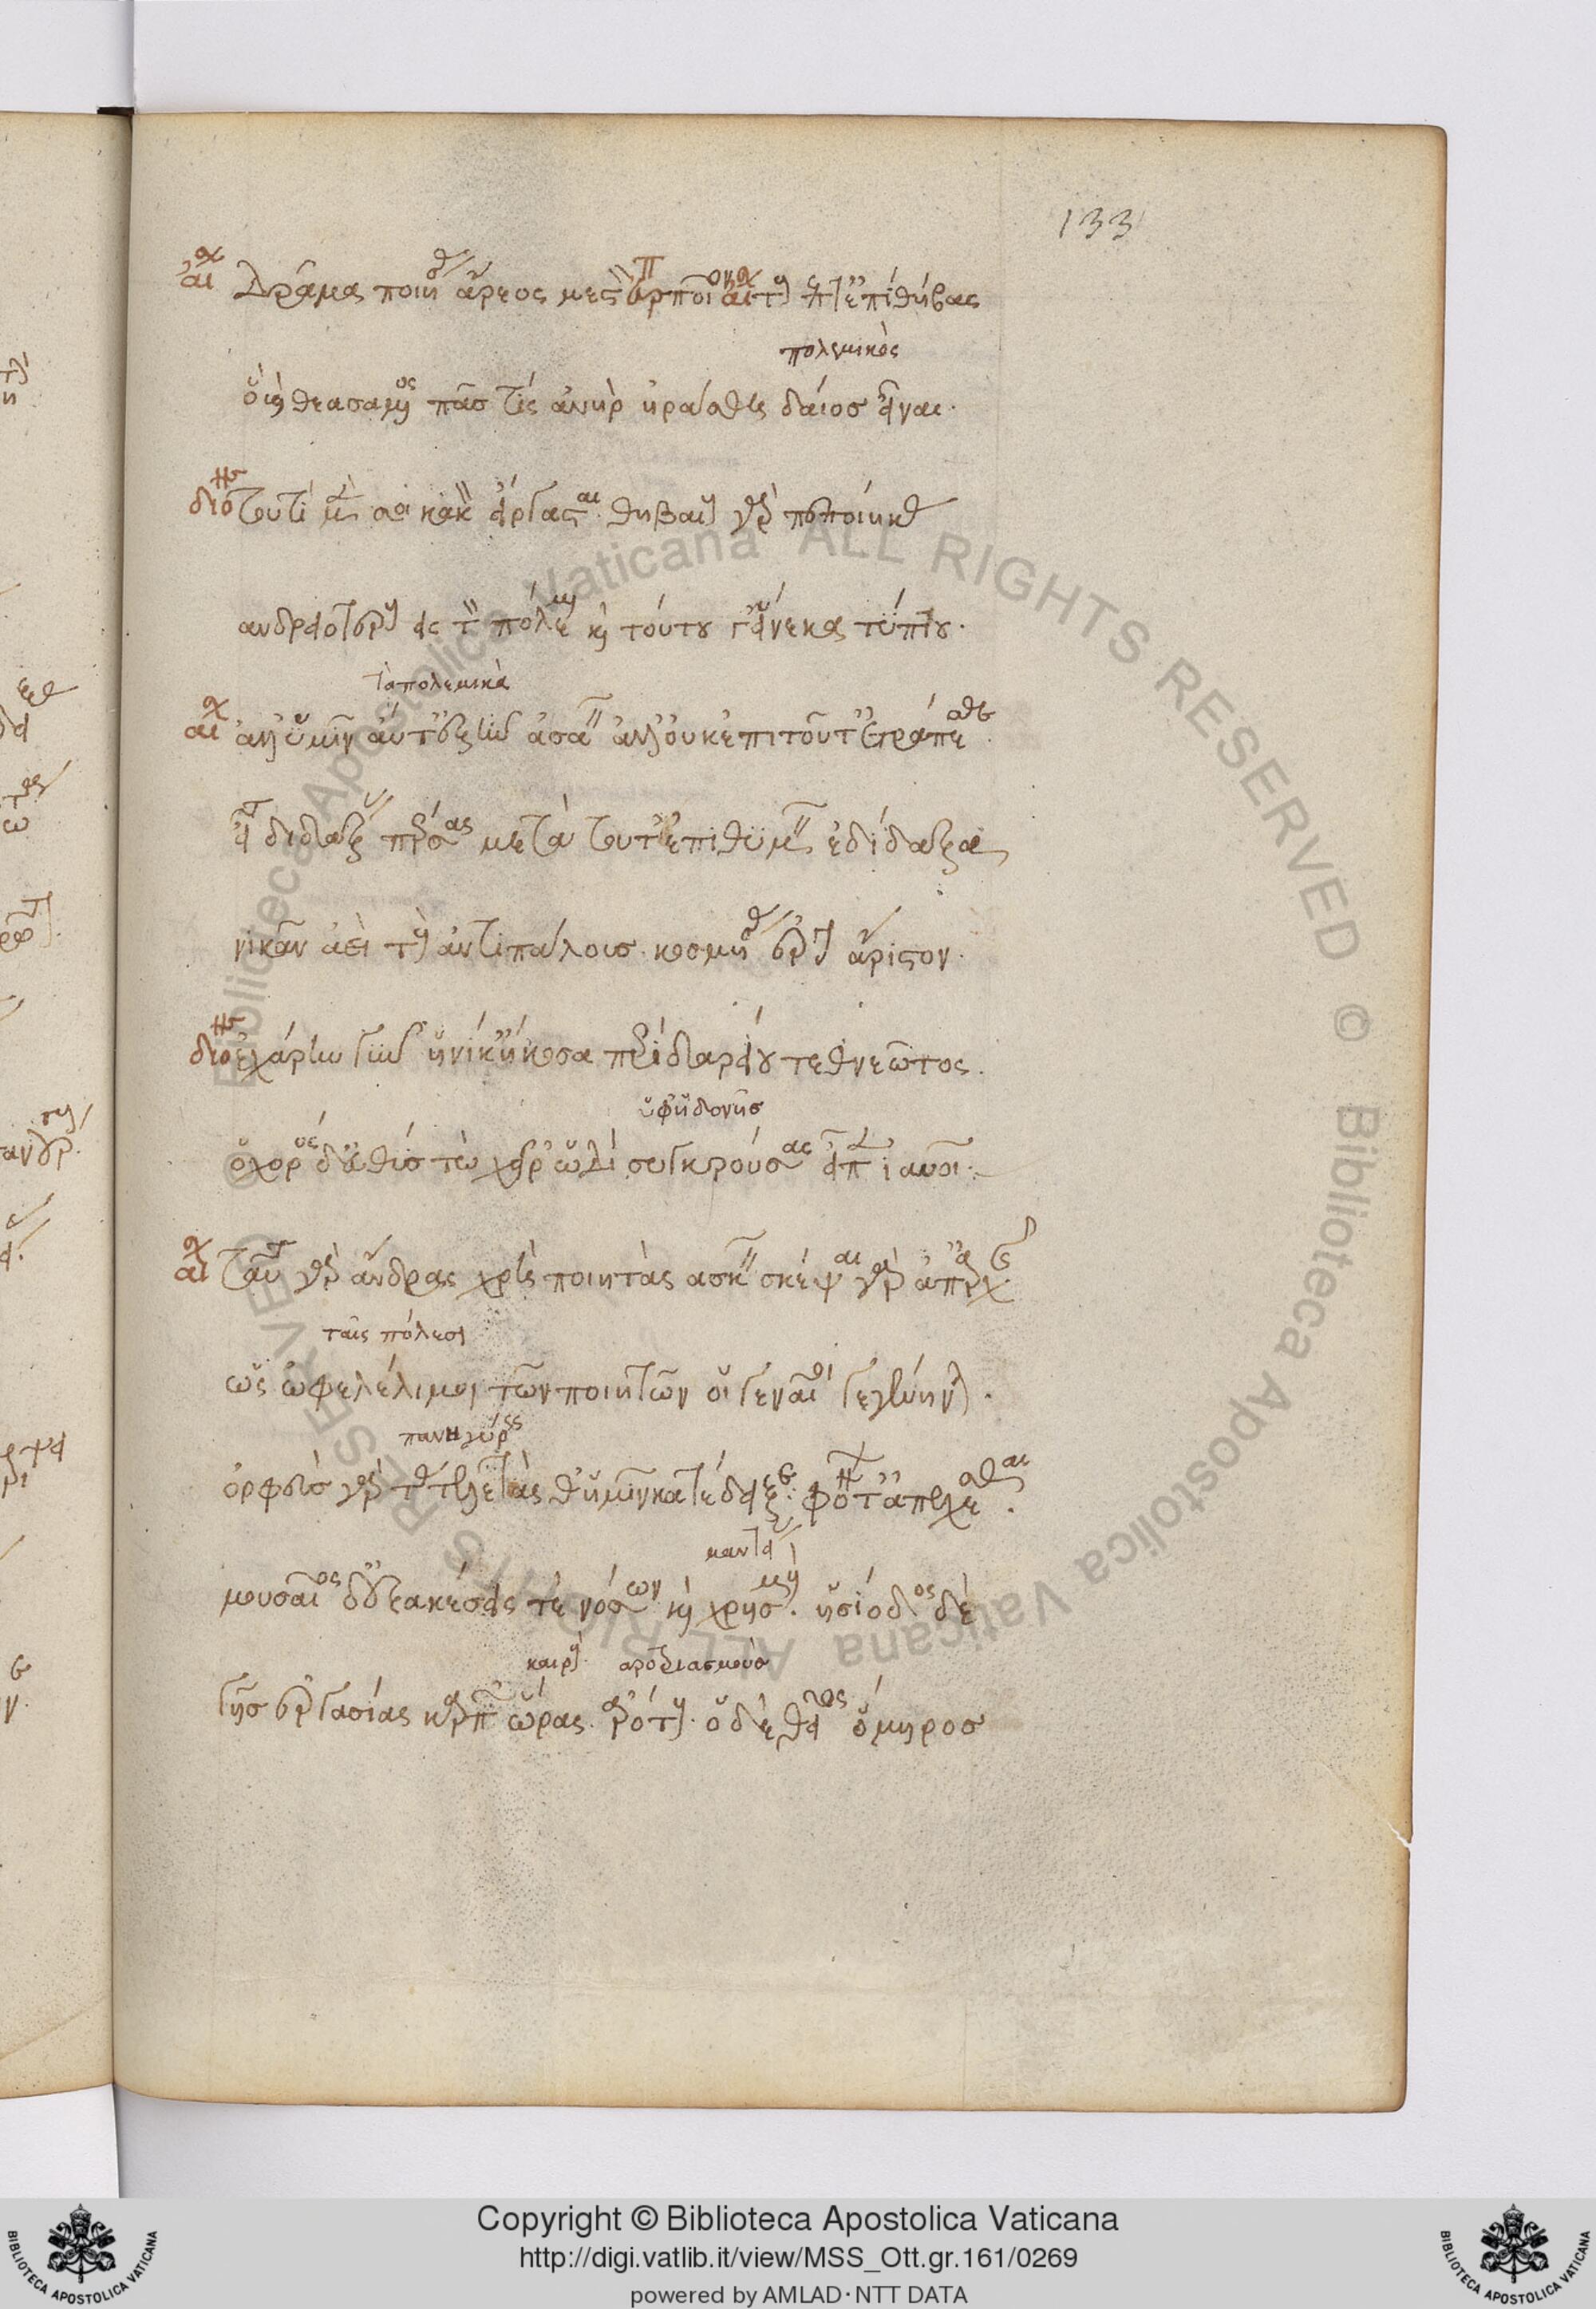 133
αἰ Δρᾶμα ποιήσας ἄρεως μεστόν ποῖον αἰ τοὺς ἕπτ' ἐπὶ θήβας
πολεμικός
ὃ θεασάμενος πᾶς τις ἀνὴρ ἠράσθη δάϊος εἶναι.
διό τουτὶ μέν σοι κακὸν εἴργασται. θηβαίους γὰρ πεποίηκας
ἀνδρειοτέρους εἰς τὸν πόλεμον καὶ τούτου γ' εἵνεκα τύπτου.
τὰ πολεμικὰ
αἰ ἀλλ' ὑμῖν αὔτ' ἐξῆν ἀσκεῖν ἀλλ' οὐκ ἐπὶ τοῦτ' ἐτράπεσθε.
εἶτα διδάξας πέρσας μετὰ τοῦτ' ἐπιθυμεῖν ἐδίδαξα
νικᾶν ἀεὶ τοὺς ἀντιπάλους. κοσμήσας ἔργον ἄριστον.
διό ἐχάρην γοῦν ἡνίκ' ἤκουσα περὶ δαρείου τεθνεῶτος.
ὑφ' ἡδονῆς
ὁ χορὸς δ' εὐθὺς τὼ χεῖρ' ὡδὶ συγκρούσας εἶπεν ἰαυοῖ.
αἰ ταῦτα γὰρ ἄνδρας χρὴ ποιητὰς ἀσκεῖν σκέψαι γὰρ ἀπ' ἀρχῆς
ταῖς πόλεσι
ὡς ὠφελέλιμοι τῶν ποιητῶν οἱ γενναῖοι γεγένηνται.
πανηγύρεις
ὀρφεὺς γὰρ τελετάς θ' ὑμῖν κατέδειξε. φόνων τ' ἀπέχεσθαι.
μαντείας
μουσαῖος δ' ἐξακέσεις τε νόσων καὶ χρησμούς. ἡσίοδος δὲ
καιρούς ἀροτριασμοὺς
γῆς ἐργασίας καρπῶν ὥρας. ἀρότους. ὁ δὲ θεῖος ὅμηρος
Copyright © Biblioteca Apostolica Vaticana
http://digi.vatlib.it/view/MSS_Ott.gr.161/0269
powered by AMLAD·NTT DATA